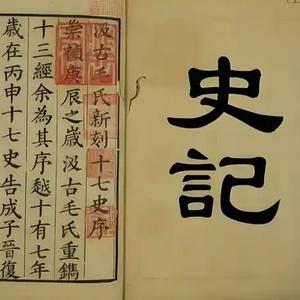 史記
汲古毛氏新刻十七史序
崇禎庚辰之歲汲古毛氏重鐫
十三經余為其序越十有七年
歲在丙申十七史告成子晉復